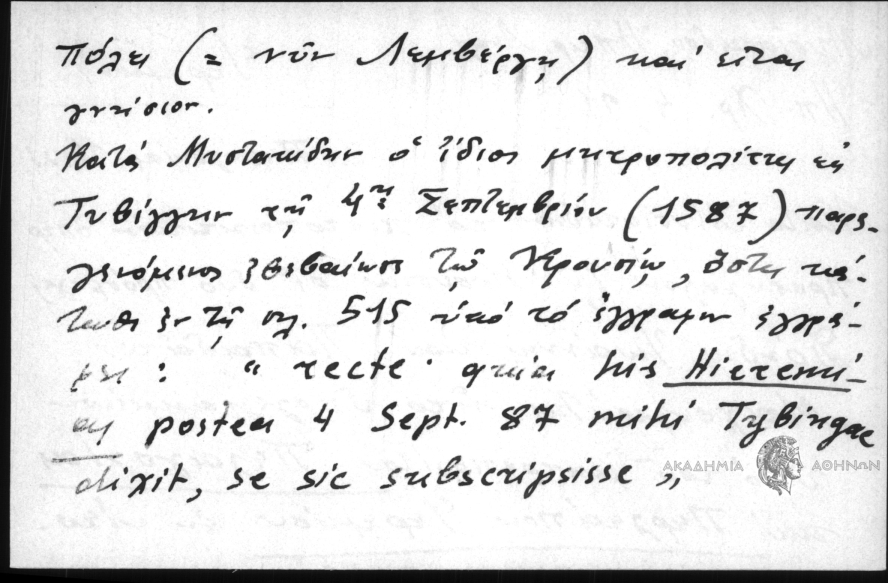 πόλει (= νῦν Λεμβέργῃ) καί εἶναι
γνήσιον.
Κατά Μυστακίδην ὁ ἴδιος μητροπολίτης ἐν
Τυβίγγην τῇ 4ῃ Σεπτεμβρίου (1587) παρε-
γενόμενος ἐβεβαίωσε τῷ Κρουσίῳ, ὅστις κά-
τωθι ἐν τῇ σελ. 515 ὑπό τό ἔγγραφον ἐγγρά-
φει : “ recte · quia his Hieremi-
as postea 4 Sept. 87 mihi Tybingae
dixit, se sic subscripsisse „
ΑΚΑΔΗΜΙΑ ΑΘΗΝΩΝ